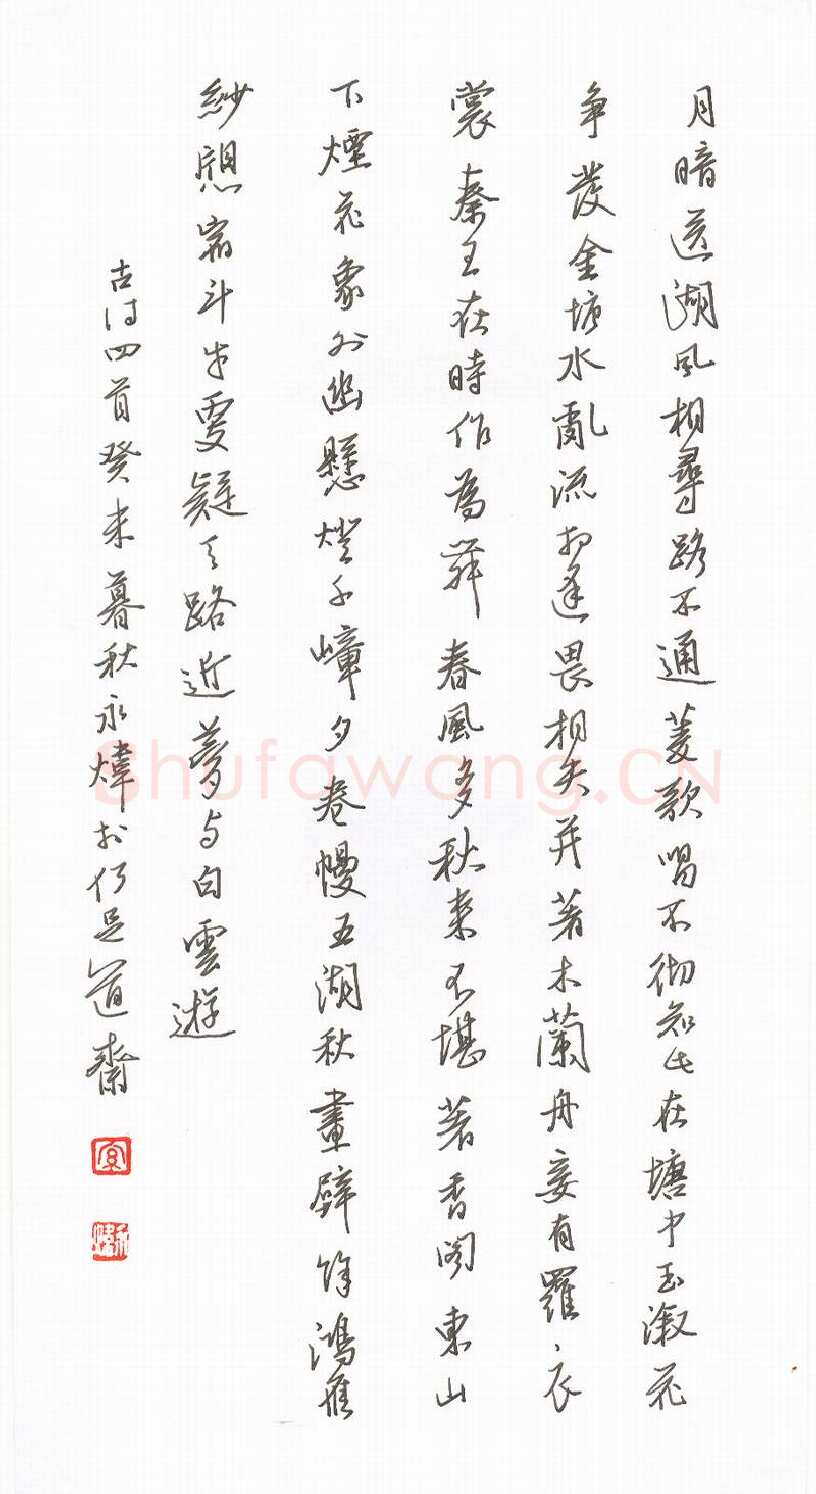 月暗送湖風相尋路不通菱歌唱不彻知此在塘中玉溆花
争發金塘水亂流相逢畏相失并著木蘭舟妾有羅衣
裳秦王在時作為舞春風多秋來不堪著香閣東山
下煙花象外幽懸燈千嶂夕卷幔五湖秋畫壁餘鴻雁
紗窻宿斗牛更疑天路近夢與白雲遊
古诗四首癸未暮秋永煒於仍是道齋
Shufawang.CN